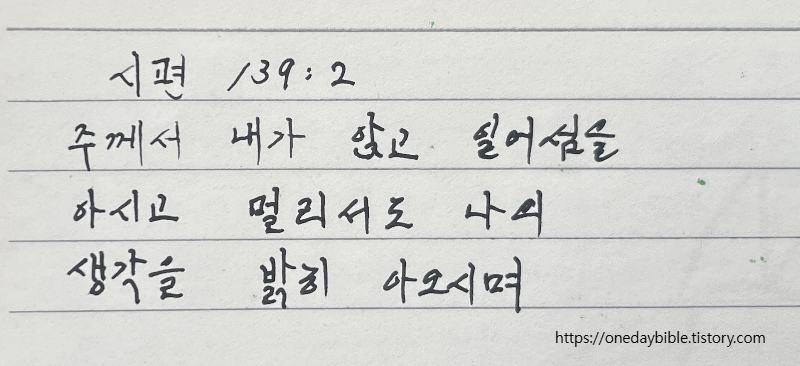 시편 139:2
주께서 내가 앉고 일어섬을
아시고 멀리서도 나의
생각을 밝히 아오시며
https://onedaybible.tistory.com